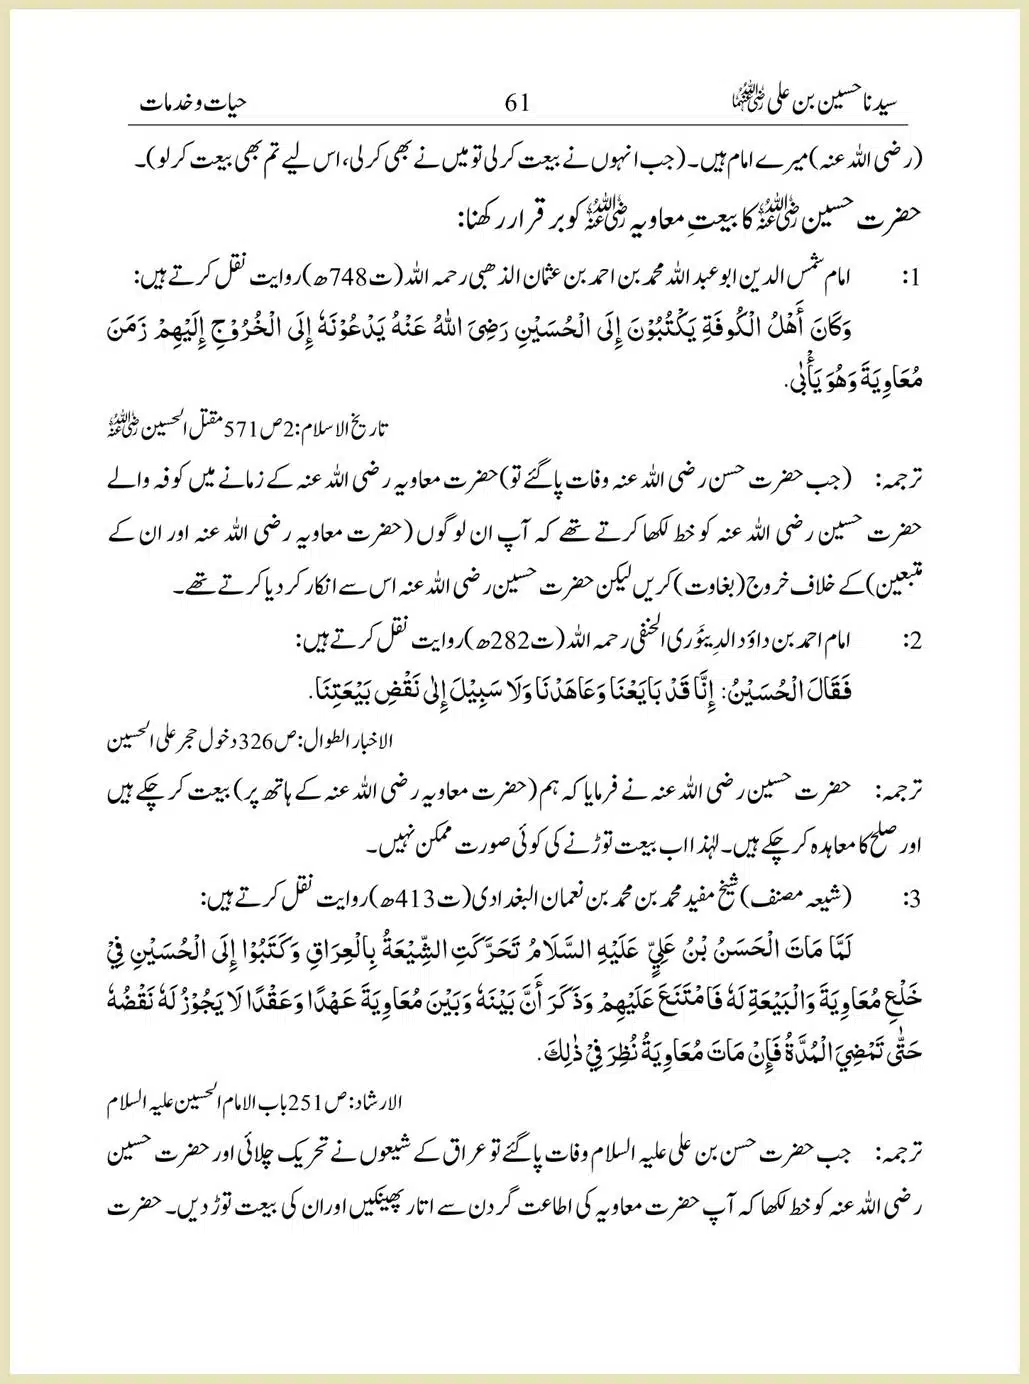 سیدنا حسین بن علی رضی اللہ عنہما 61 حیات و خدمات
(رضی اللہ عنہ) میرے امام ہیں۔ (جب انہوں نے بیعت کر لی تو میں نے بھی کر لی، اس لیے تم بھی بیعت کر لو)۔
حضرت حسین رضی اللہ عنہ کا بیعتِ معاویہ رضی اللہ عنہ کو بر قرار رکھنا:
1: امام شمس الدین ابو عبد اللہ محمد بن احمد بن عثمان الذھبی رحمہ اللہ (ت748ھ) روایت نقل کرتے ہیں:
وَكَانَ أَهْلُ الْكُوفَةِ يَكْتُبُوْنَ إِلَى الْحُسَيْنِ رَضِیَ اللهُ عَنْهُ يَدْعُوْنَهٗ إِلَى الْخُرُوْجِ إِلَيْهِمْ زَمَنَ
مُعَاوِيَةَ وَهُوَ يَأْبٰى.
تاریخ الاسلام: 2ص571 مقتل الحسین رضی اللہ عنہ
ترجمہ: (جب حضرت حسن رضی اللہ عنہ وفات پا گئے تو) حضرت معاویہ رضی اللہ عنہ کے زمانے میں کوفہ والے
حضرت حسین رضی اللہ عنہ کو خط لکھا کرتے تھے کہ آپ ان لوگوں (حضرت معاویہ رضی اللہ عنہ اور ان کے
متبعین) کے خلاف خروج (بغاوت) کریں لیکن حضرت حسین رضی اللہ عنہ اس سے انکار کر دیا کرتے تھے۔
2: امام احمد بن داؤد الدِینَوَری الحنفی رحمہ اللہ (ت282ھ) روایت نقل کرتے ہیں:
فَقَالَ الْحُسَيْنُ: إِنَّا قَدْ بَايَعْنَا وَعَاهَدْنَا وَلَا سَبِيْلَ إِلٰى نَقْضِ بَيْعَتِنَا.
الاخبار الطوال: ص326 دخول حجر علی الحسین
ترجمہ: حضرت حسین رضی اللہ عنہ نے فرمایا کہ ہم (حضرت معاویہ رضی اللہ عنہ کے ہاتھ پر) بیعت کر چکے ہیں
اور صلح کا معاہدہ کر چکے ہیں۔ لہٰذا اب بیعت توڑنے کی کوئی صورت ممکن نہیں۔
3: (شیعہ مصنف) شیخ مفید محمد بن محمد بن نعمان البغدادی (ت413ھ) روایت نقل کرتے ہیں:
لَمَّا مَاتَ الْحَسَنُ بْنُ عَلِيٍّ عَلَيْهِ السَّلَامُ تَحَرَّكَتِ الشِّيْعَةُ بِالْعِرَاقِ وَكَتَبُوْا إِلَى الْحُسَيْنِ فِيْ
خَلْعِ مُعَاوِيَةَ وَالْبَيْعَةِ لَهٗ فَامْتَنَعَ عَلَيْهِمْ وَذَكَرَ أَنَّ بَيْنَهٗ وَبَيْنَ مُعَاوِيَةَ عَهْدًا وَعَقْدًا لَا يَجُوْزُ لَهٗ نَقْضُهٗ
حَتّٰى تَمْضِيَ الْمُدَّةُ فَإِنْ مَاتَ مُعَاوِيَةُ نُظِرَ فِيْ ذٰلِكَ.
الارشاد: ص251 باب الامام الحسین علیہ السلام
ترجمہ: جب حضرت حسن بن علی علیہ السلام وفات پا گئے تو عراق کے شیعوں نے تحریک چلائی اور حضرت حسین
رضی اللہ عنہ کو خط لکھا کہ آپ حضرت معاویہ کی اطاعت گردن سے اتار پھینکیں اور ان کی بیعت توڑ دیں۔ حضرت